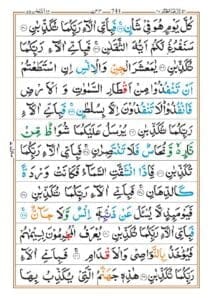 كُلَّ يَوْمٍ هُوَ فِيْ شَاْنٍ فَبِاَيِّ اٰلَآءِ رَبِّكُمَا تُكَذِّبٰنِ
سَنَفْرُغُ لَكُمْ اَيُّهَ الثَّقَلٰنِ فَبِاَيِّ اٰلَآءِ رَبِّكُمَا
تُكَذِّبٰنِ يٰمَعْشَرَ الْجِنِّ وَالْاِنْسِ اِنِ اسْتَطَعْتُمْ
اَنْ تَنْفُذُوْا مِنْ اَقْطَارِ السَّمٰوٰتِ وَالْاَرْضِ
فَانْفُذُوْا لَا تَنْفُذُوْنَ اِلَّا بِسُلْطٰنٍ فَبِاَيِّ اٰلَآءِ
رَبِّكُمَا تُكَذِّبٰنِ يُرْسَلُ عَلَيْكُمَا شُوَاظٌ مِّنْ
نَّارٍ وَّنُحَاسٌ فَلَا تَنْتَصِرٰنِ فَبِاَيِّ اٰلَآءِ رَبِّكُمَا
تُكَذِّبٰنِ فَاِذَا انْشَقَّتِ السَّمَآءُ فَكَانَتْ وَرْدَةً
كَالدِّهَانِ فَبِاَيِّ اٰلَآءِ رَبِّكُمَا تُكَذِّبٰنِ
فَيَوْمَئِذٍ لَّا يُسْـَٔلُ عَنْ ذَنْۢبِهٖ اِنْسٌ وَّلَا جَآنٌّ
فَبِاَيِّ اٰلَآءِ رَبِّكُمَا تُكَذِّبٰنِ يُعْرَفُ الْمُجْرِمُوْنَ بِسِيْمٰهُمْ
فَيُؤْخَذُ بِالنَّوَاصِيْ وَالْاَقْدَامِ فَبِاَيِّ اٰلَآءِ
رَبِّكُمَا تُكَذِّبٰنِ هٰذِهٖ جَهَنَّمُ الَّتِيْ يُكَذِّبُ بِهَا